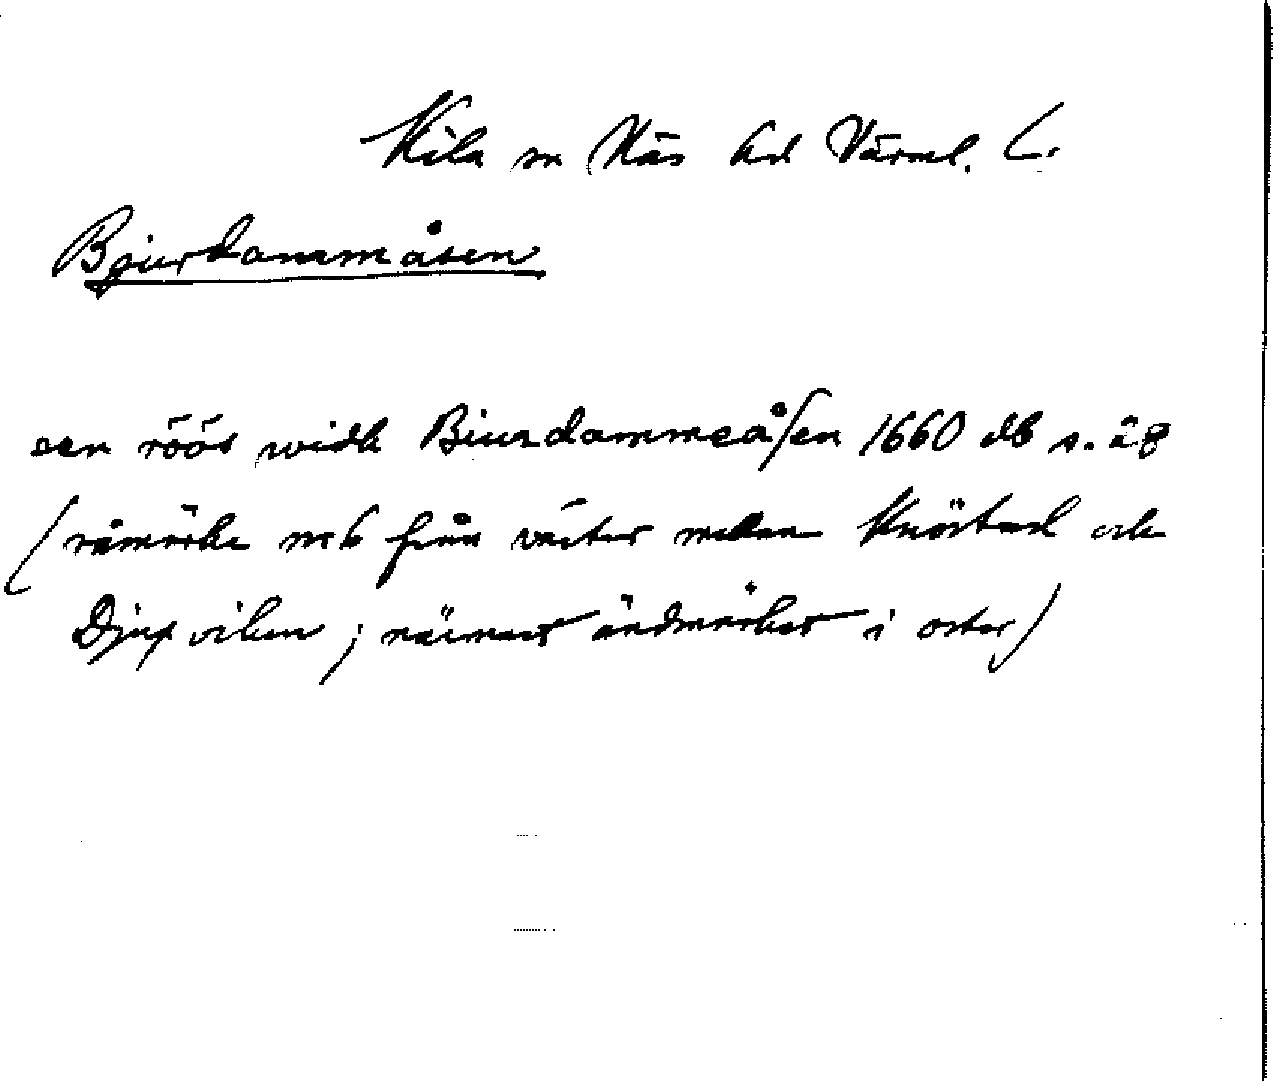 Kila sn Näs hd Värml. L.
Bjurdammåsen
een röös widh Biurdammeåsen 1660 db s. 28
(råmärke nr 6 från väster mellan Knöstad och
Djupviken; närmast ändmärket i öster)